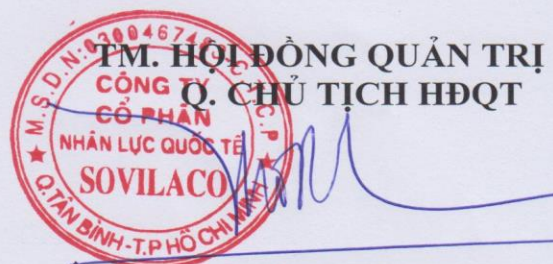 TM. HỘI ĐỒNG QUẢN TRỊ
Q. CHỦ TỊCH HĐQT
CÔNG TY
CỔ PHẦN
NHÂN LỰC QUỐC TẾ
SOVILACO
Q.TÂN BÌNH-T.P HỒ CHÍ MINH